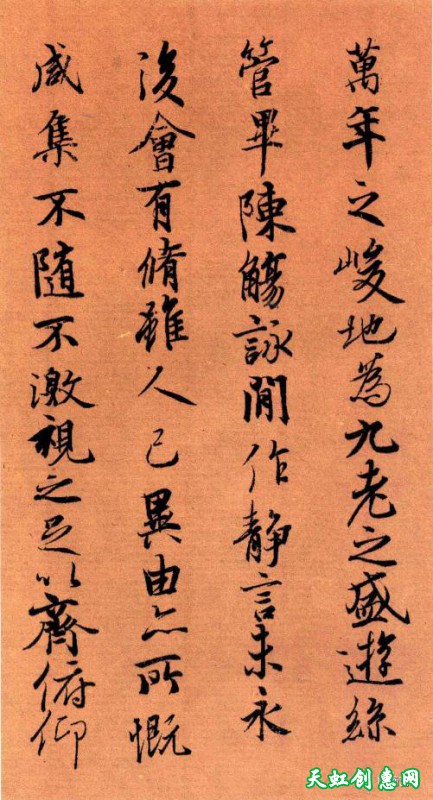 萬年之峻地為九老之盛遊絲
管畢陳觴詠閒作靜言未永
後會有脩雖人已異由亦所慨
咸集不隨不激視之足以齊俯仰
天虹创惠网